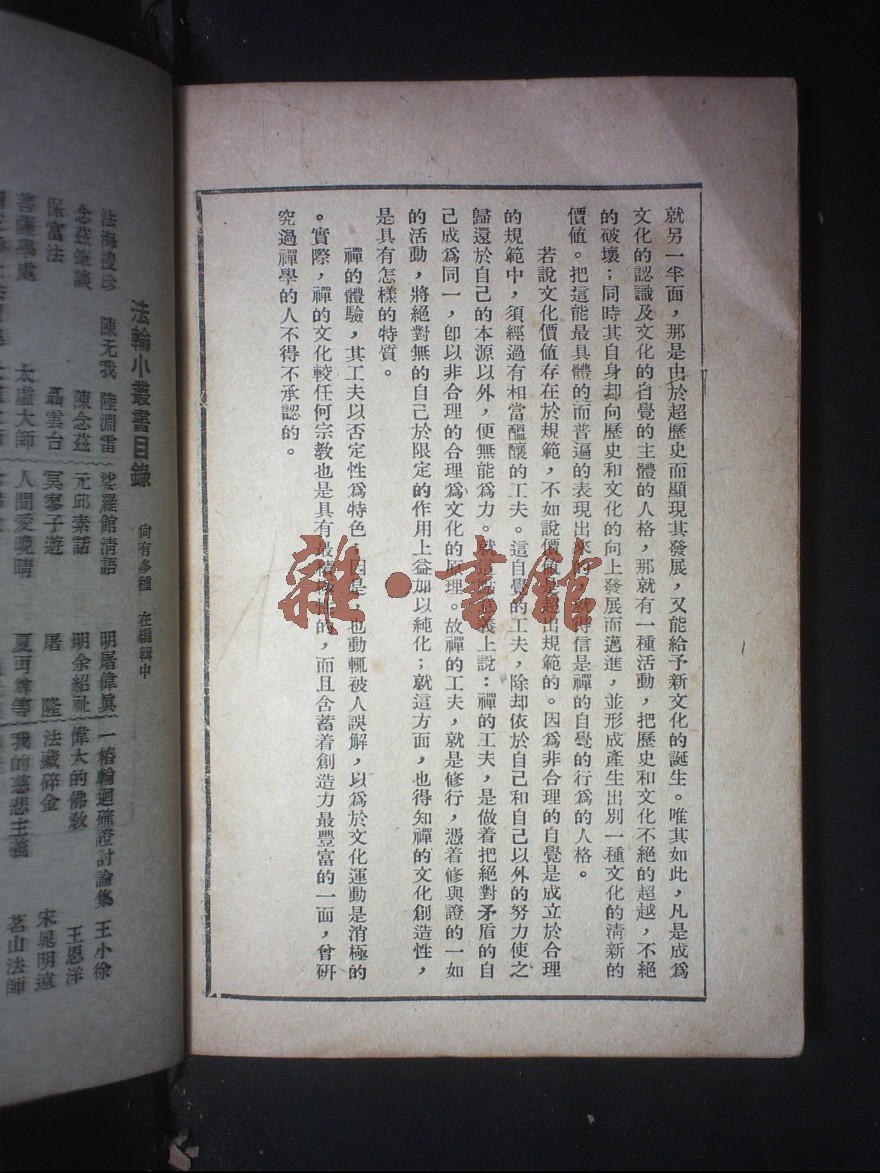 就另一半面，那是由於超歷史而顯現其發展，又能給予新文化的誕生。唯其如此，凡是成爲
文化的認識及文化的自覺的主體的人格，那就有一種活動，把歷史和文化不絕的超越，不絕
的破壞；同時其自身却向歷史和文化的向上發展而邁進，並形成產生出別一種文化的清新的
價值。把這能最具體的而普遍的表現出來的，就得信是禪的自覺的行爲的人格。
若說文化價值存在於規範，不如說價值是超出規範的。因爲非合理的自覺是成立於合理
的規範中，須經過有相當醞釀的工夫。這自覺的工夫，除却依於自己和自己以外的努力使之
歸還於自己的本源以外，便無能爲力。就這點意義上說：禪的工夫，是做着把絕對矛盾的自
己成爲同一，卽以非合理的合理爲文化的原理。故禪的工夫，就是修行，憑着修與證的一如
的活動，將絕對無的自己於限定的作用上益加以純化；就這方面，也得知禪的文化創造性，
是具有怎樣的特質。
禪的體驗，其工夫以否定性爲特色，因是，也動輒被人誤解，以爲於文化運動是消極的
。實際，禪的文化較任何宗教也是具有最積極性的，而且含蓄着創造力最豐富的一面，曾研
究過禪學的人不得不承認的。
雜·書館
法輪小叢書目錄 尙有多種 在編輯中
法海搜珍 陳无我 陸淵雷 娑羅館清語 明屠偉眞 一樁輪迴確證討論集 王小徐
念茲筆談 陳念茲 元邱素話 明余紹祉 偉大的佛敎 王恩洋
保富法 聶雲台 冥寥子遊 屠 隆 法藏碎金 宋晁明遠
菩薩學處 太虛大師 人間愛晚晴 夏丏尊等 我的慈悲主義 茗山法師